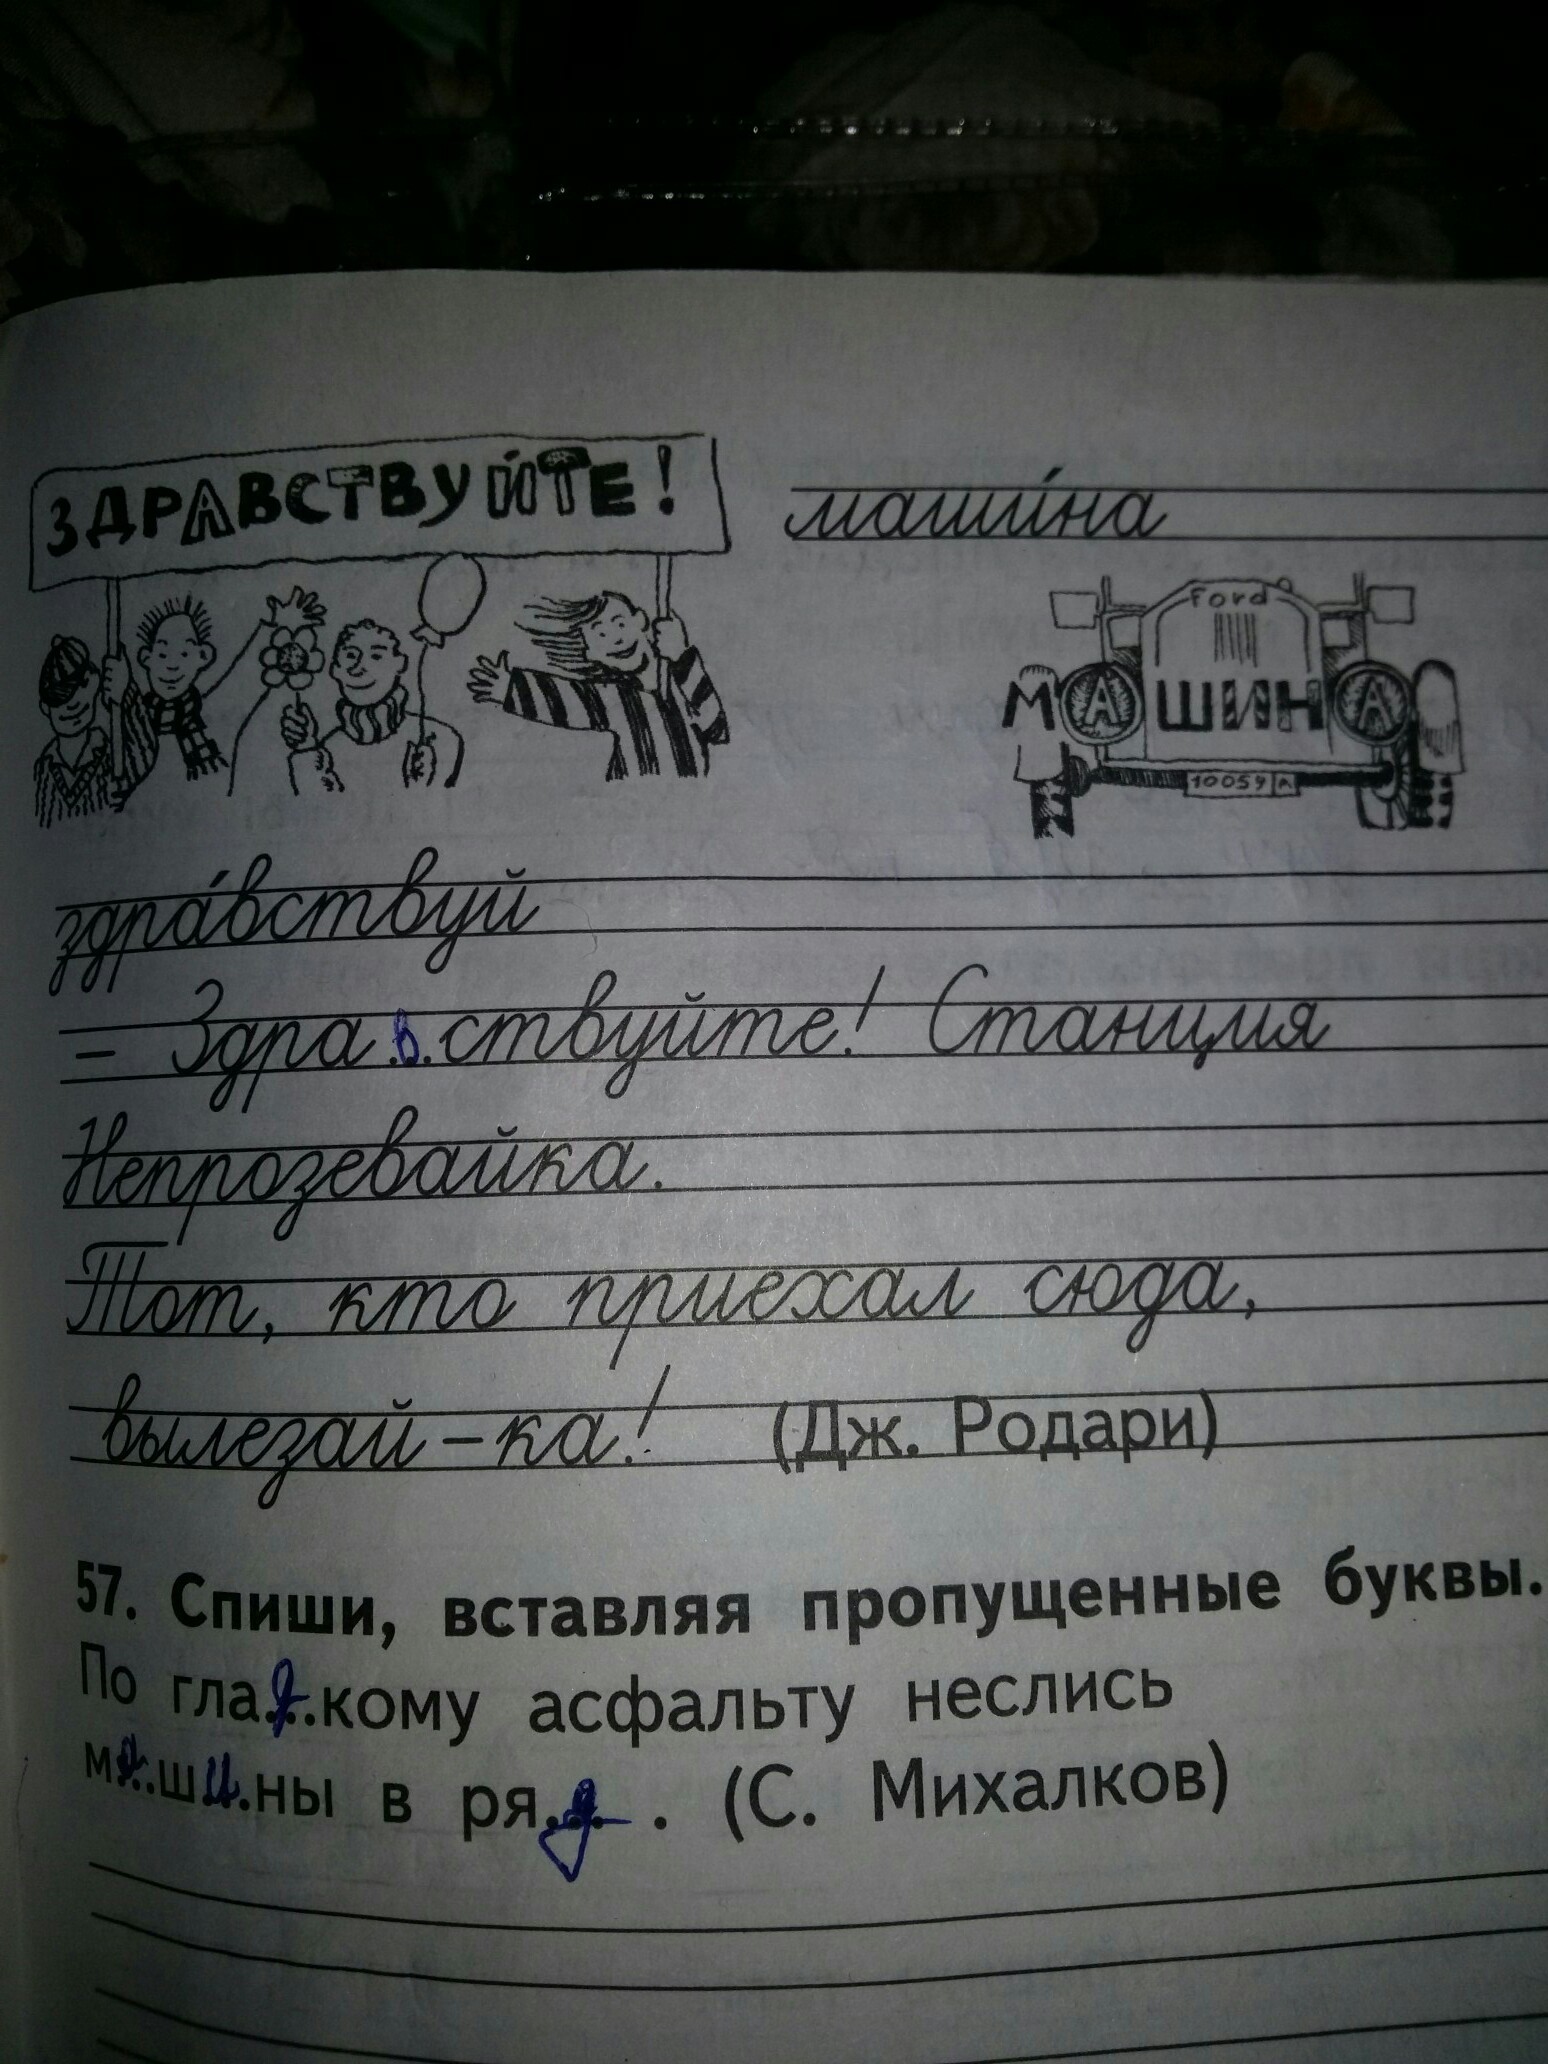 ЗДРАВСТВУЙТЕ!
маши́на
Ford
МАШИНА
10054 А
здра́вствуй
– Здра.в.ствуйте! Станция
Непрозевайка.
Тот, кто приехал сюда,
вылезай-ка! (Дж. Родари)
57. Спиши, вставляя пропущенные буквы.
По гла.д..кому асфальту неслись
ма..ши.ны в ря.д.. . (С. Михалков)